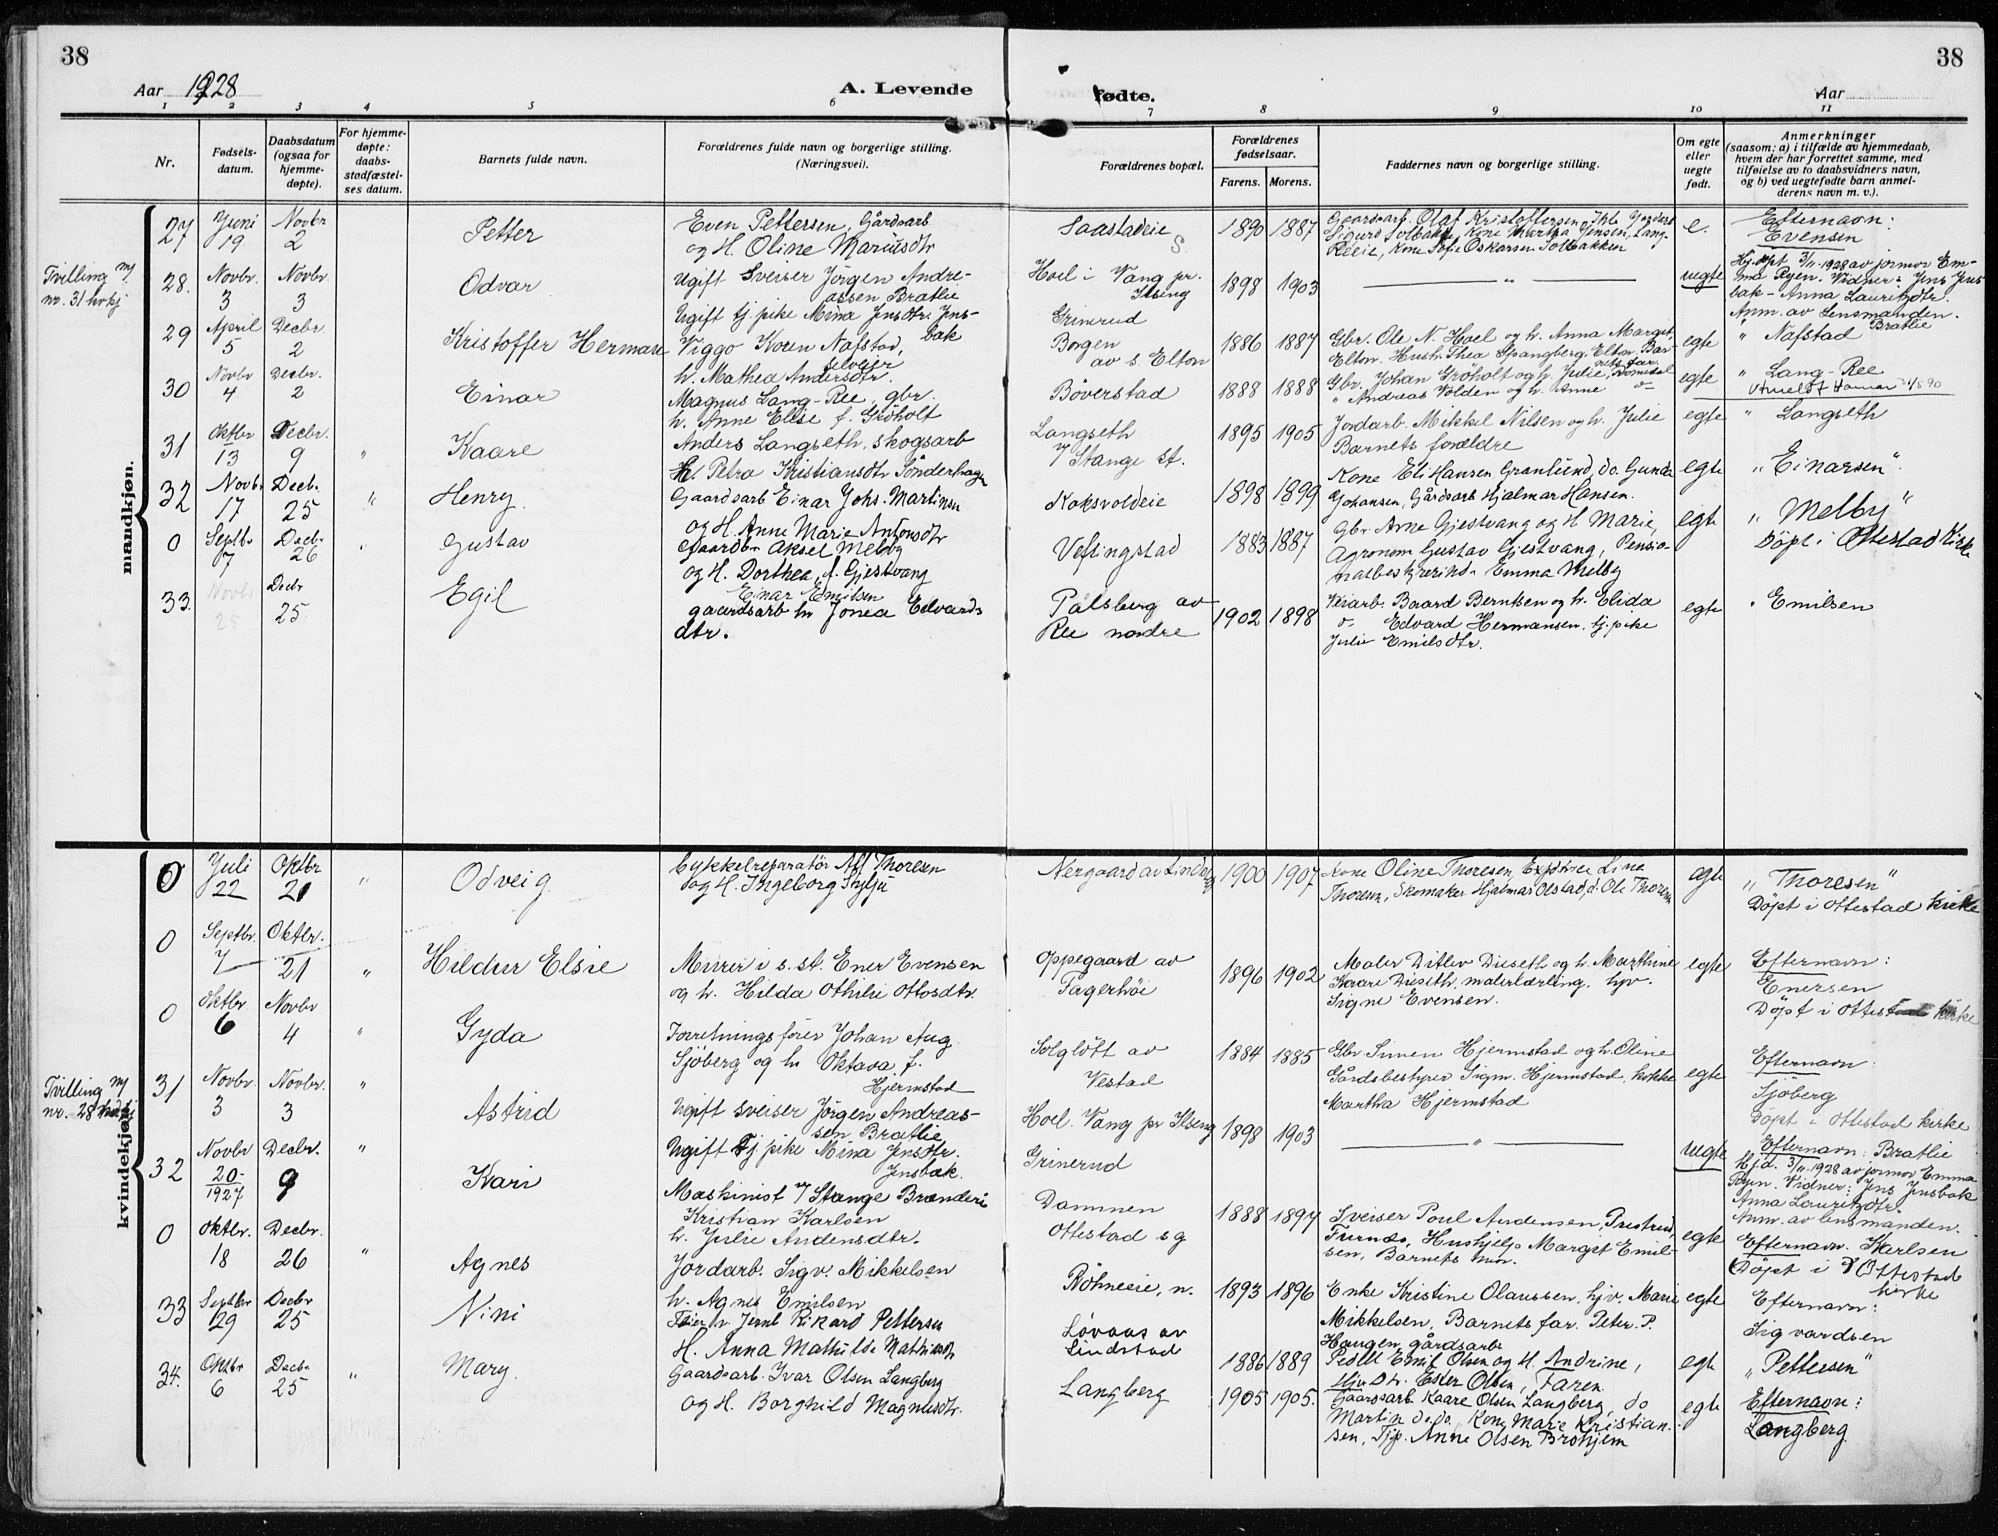 38
38
Aar 1928
A. Levende
fødte.
Aar
1 2 3 4 5 6 7 8 9 10 11
Nr.
Fødsels-
datum.
Daabsdatum
(ogsaa for
hjemme-
døpte).
For hjemme-
døpte:
daabs-
stadfæstel-
ses datum.
Barnets fulde navn.
Forældrenes fulde navn og borgerlige stilling.
(Næringsvei).
Forældrenes bopæl.
Forældrenes
fødselsaar.
Farens. Morens.
Faddernes navn og borgerlige stilling.
Om egte
eller
uegte
født.
Anmerkninger
(saasom: a) i tilfælde av hjemmedaab,
hvem der har forrettet samme, med
tilføielse av to daabsvidners navn,
og b) ved uegtefødte barn anmel-
derens navn m. v.).
mandkjøn.
27
Juni
19
Novbr
2
Petter
Even Pettersen, Gårdsarb
og H. Oline Mariusdtr
Saastadeie
S.
1890 1887
Gaardsarb. Olaf Kristoffersen,
Sigurd Solbakke, Kone Martha Jensen, Lang-
Reeie, Kone Sofie Oskarsen Solbakken
e.
Efternavn:
Evensen
Tvilling m/
nr. 31 kvkj
28.
Novbr.
3
Novbr.
3
Odvar
Ugift Sveiser Jörgen Andre-
assen Bratlie
Ugift tj. pike Mina Jensdtr. Jens-
bak
Hoel i Vang pr.
Ilseng
Grinerud
1898 1903
"
uegte
Hj.döpt 3/11.1928 av jormor Em-
ma Ryen. Vidner: Jens Jens-
bak - Anna Lauritzdtr.
Anm. av Lensmanden.
Bratlie
29
April
5
Decbr.
2
Kristoffer Herman
Viggo Koren Nafstad,
selveier
h. Mathea Andersdtr.
Borgen
av s. Elton
1886 1887
Gbr. Ole N. Hoel og h. Anna Margit,
Elton. Hush. Thea Spangberg, Elton. Bar-
nets far
egte
" Nafstad
30
Novbr
4
Decbr.
2
Einar
Magnus Lang-Ree, gbr.
h. Anne Elise f. Gröholt
Böverstad
1888 1888
Gbr. Johan Gröholt og h. Julie, Romedal
" Andreas Volden og h. Anne
egte
" Lang-Ree
31
Oktbr
13
Decbr.
9
"
Kaare
Anders Langseth, skogsarb
H. Petra Kristiansdtr Sönderhagen
Langseth
7 Stange st.
1895 1905
Jordarb. Mikkel Nilsen og h. Julie
Barnets forældre
egte
" Langseth
32
Novbr
17
Decb.
25
"
Henry.
Gaardsarb Einar Johs. Martinsen
og H. Anne Marie Antonsdtr
Koksvoldeie
1898 1899
Kone Eli Hansen Granlund, do. Gunda
Johansen, Gårdsarb Hjalmar Hansen.
egte
„ Einarsen".
0
Septbr
7
Decbr
26
Gustav
Gaardbr Aksel Melby
og H. Dorthea, f. Gjestvang
Veflingstad
1883 1887
Gbr Arne Gjestvang og H Marie,
Agronom Gustav Gjestvang, Pensio-
natbestyrerinde Emma Melby
egte
„ Melby"
Döpt i Ottestad Kirke
33.
Novbr
25
Decbr
25.
Egil
Einar Emilsen
gaardsarb h. Jonea Edvards
dtr.
Pålsberg av
Ree nordre
1902 1898
Veiarb. Baard Berntsen og h. Elida
o- Edvard Hermansen, tj. pike
Julie Emilsdtr.
egte
" Emilsen
kvindekjøn.
0
Juli
22
Oktbr
21
"
Odveig.
Cykkelreparatör Alf Thoresen
og H. Ingeborg
Nergaard av Lindby
1900 1907
Kone Oline Thoresen, Line
Thoresen, Skomaker Hjalmar Olstad, d. Ole Thoresen
egte
„ Thoresen"
Döpt i Ottestad kirke
0
Septbr.
7
Oktbr.
21
"
Hildur Elsie
Murer i s. st. Ener Evensen
og h. Hilda Othilie Ottosdtr.
Oppegaard av
Fagerhöi
1896 1902
Maler Ditlev Diseth og h. Marthine
Kaare Diseth, malerlærling, hjv.
Signe Evensen.
egte
Efternavn:
Enersen
Döpt i Ottestad kirke
0
Oktbr
6
Novbr
4
"
Gyda
Forretningsförer Johan Aug.
Sjöberg og h. Oktava f.
Hjermstad
Solglött av
Vestad
1884 1885
Gbr Simen Hjermstad og h. Oline
Gårdsbestyrer Sigm. Hjermstad, kokke
Martha Hjermstad
egte
Efternavn:
Sjöberg
Döpt i Ottestad kirke
Tvilling m/
nr. 28
31
Novbr.
3
Novbr.
3
"
Astrid
Ugift sveiser Jörgen Andreas-
sen Bratlie
Ugift Tj. pike Mina Jensdtr.
Jensbak.
Hoel. Vang pr Ilseng
Grinerud
1898 1903
"
uegte
Efternavn: Bratlie
Hj.d. 3/11.1928 av jormor Emma
Ryen. Vidner: Jens Jensbak
Anna Lauritzdtr.
Anm. av lensmanden.
32
Novbr
20
1927
Decbr.
9
"
Kari
Maskinist v/ Stange Brænderi
Kristian Karlsen
h. Julie Andersdtr.
Dammen
Ottestad sg
1888 1897
Sveiser Poul Andersen, Prestrud,
Furnes, Hushjelp Margit Emil-
sen, Barnets mor.
egte
Efternavn. Karlsen
0
Oktbr.
18
Decbr.
26
"
Agnes
Jordarb. Sigv. Mikkelsen
h. Agnes Emilsen
Röhneeie, n.
1893 1896
Enke Kristine Olaussen, hjv. Marie
Mikkelsen, Barnets far. Peter P.
Haugen, gårdsarb.
egte
Döpt i Ottestad
kirke
Efternavn:
Sigvardsen
33
Septbr
29
Decbr
25
Nini
Rikard Pettersen
H. Anna Mathilde Mathisdtr
Lövaas av
Lindstad
1886 1889
Pedell Emil Olsen og H. Andrine,
Hjv. Dtr. Ester Olsen, Faren.
egte
„ Pettersen"
34.
Oktbr
6
Decbr
25
"
Mary.
Gaardsarb. Ivar Olsen Langberg
og H. Borghild Magnusdtr.
Langberg
1905 1905.
Gaardsarb Kaare Olsen Langberg, do
Martin do do. Kone Marie Kristian-
sen, Tjp. Anne Olsen Brohjem
egte
Efternavn:
Langberg